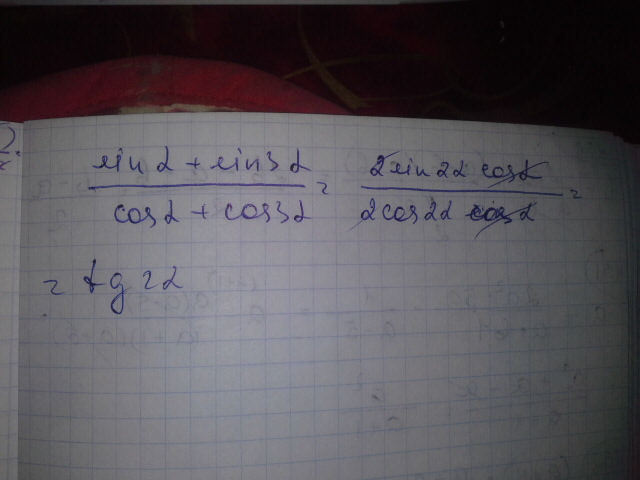 2.
(sin α + sin 3α) / (cos α + cos 3α) = (2 sin 2α cos α) / (2 cos 2α cos α) =
= tg 2α